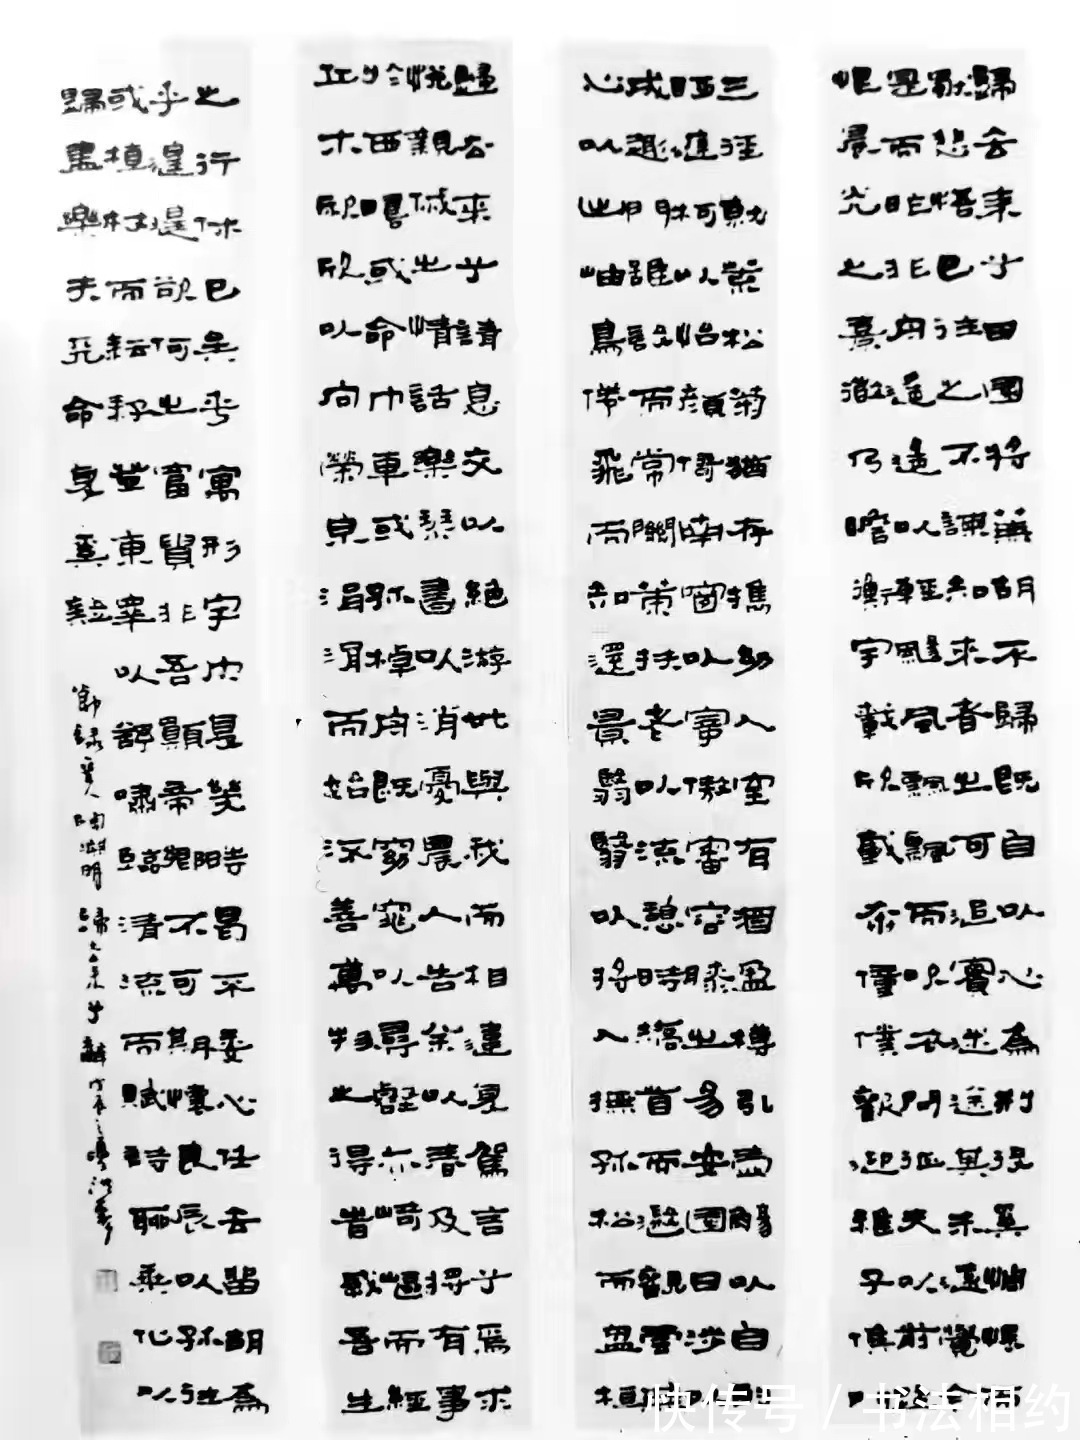 歸去來兮田園將蕪胡不歸既自以心為形役奚惆悵而
獨悲悟已往之不諫知來者之可追實迷途其未遠覺今
是而昨非舟遙遙以輕颺風飄飄而吹衣問征夫以前路
恨晨光之熹微乃瞻衡宇載欣載奔僮僕歡迎稚子候門
三徑就荒松菊猶存攜幼入室有酒盈樽引壺觴以自酌
眄庭柯以怡顏倚南窗以寄傲審容膝之易安園日涉以
成趣門雖設而常關策扶老以流憩時矯首而遐觀雲無
心以出岫鳥倦飛而知還景翳翳以將入撫孤松而盤桓
歸去來兮請息交以絕游世與我而相違復駕言兮焉求
悅親戚之情話樂琴書以消憂農人告余以春及將有事
於西疇或命巾車或棹孤舟既窈窕以尋壑亦崎嶇而經
丘木欣欣以向榮泉涓涓而始流善萬物之得時感吾生
之行休已矣乎寓形宇內復幾時曷不委心任去留胡為
乎遑遑兮欲何之富貴非吾願帝鄉不可期懷良辰以孤往
或植杖而耘耔登東皋以舒嘯臨清流而賦詩聊乘化以
歸盡樂夫天命復奚疑
節錄晉人陶淵明歸去來兮辭
快传号 / 书法相约